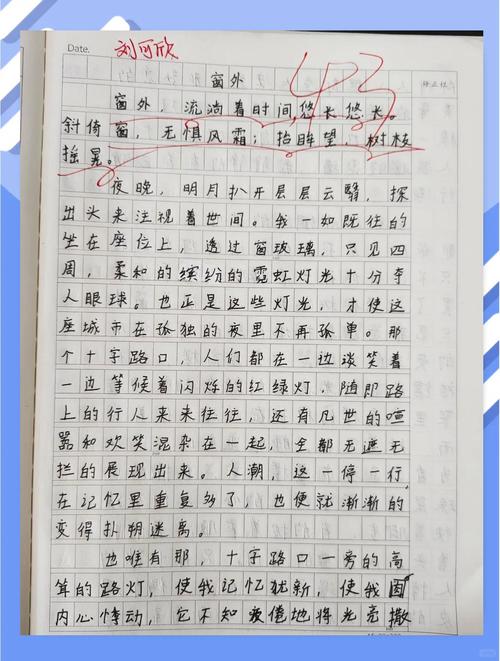 Date.
刘可欣
43
窗外
窗外，流淌着时间悠长悠长。
斜倚窗，无惧风霜；抬眸望，树枝
摇晃。
夜晚，明月扒开层层云翳，探
出头来注视着世间。我一如既往的
坐在座位上，透过窗玻璃，只见四
周，柔和的缤纷的霓虹灯光十分夺
人眼球。也正是这些灯光，才使这
座城市在孤独的夜里不再孤单。那
个十字路口，人们都在一边谈笑着
一边等候着闪烁的红绿灯，随即路
上的行人来来往往，还有凡世的喧
嚣和欢笑混杂在一起，全都无遮无
拦的展现出来。人潮，这一停一行
在记忆里重复多了，也便就渐渐的
变得扑朔迷离。
也唯有那，十字路口一旁的高
耸的路灯，使我记忆犹新，使我
内心悸动，它不知疲倦地将光亮撒